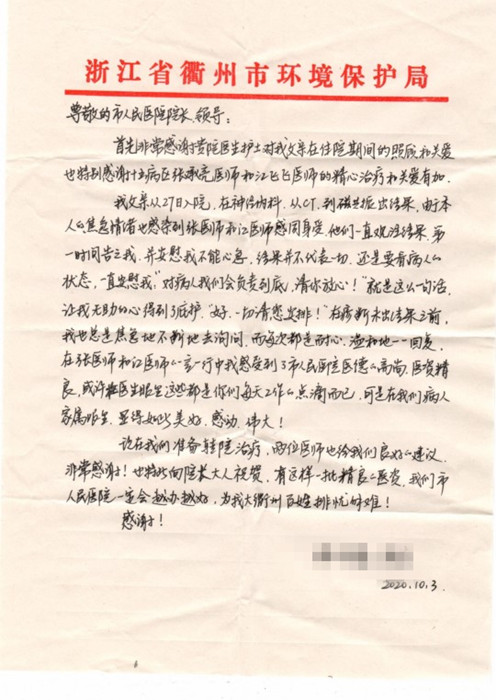 浙江省衢州市环境保护局
尊敬的市人民医院院长、领导：
首先非常感谢贵院医生护士对我父亲在住院期间的照顾和关爱
也特别感谢十五病区张承亮医师和江飞飞医师的精心治疗和关爱有加。
我父亲从27日入院，在神经内科，从CT，到磁共振出结果，由于本
人的焦急情绪也感染到张医师和江医师感同身受，他们一直观注结果，第
一时间告之我，并安慰我不能心急，结果并不代表一切，还是要看病人的
状态，一直安慰我"对病人我们会负责到底，请你放心！"就是这么一句话，
让我无助的心得到了庇护。"好，一切请您安排！"在诊断未出结果之前，
我也总是焦急地不断地去询问，而每次都是耐心、温和地一一回复，
在张医师和江医师的言行中我感受到了市人民医院医德的高尚，医资精
良，或许在医生眼里这些都是你们每天工作的点滴而已，可是在我们病人
家属眼里，显得如此美好、感动、伟大！
说在我们准备转院治疗，两位医师也给我们良好的建议，
非常感谢！也特此向院长大人祝贺，有这样一批精良的医资，我们市
人民医院一定会越办越好，为我大衢州百姓排忧解难！
感谢！
2020.10.3